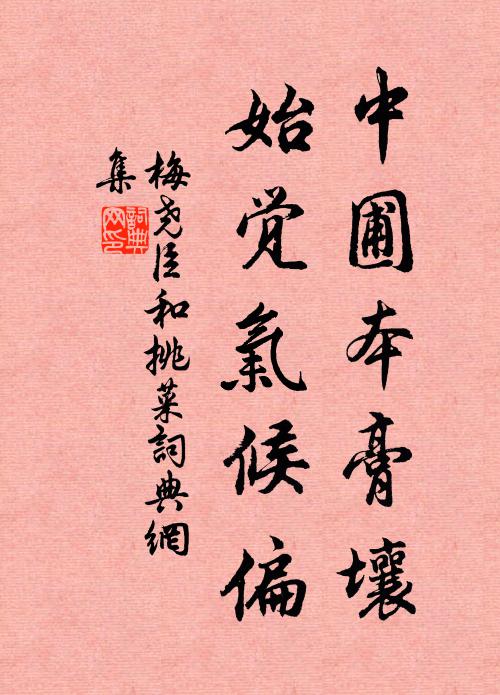 中圃本膏壤
始觉氣候偏
梅尧臣和挑菜詞典網
集
詞典
网印